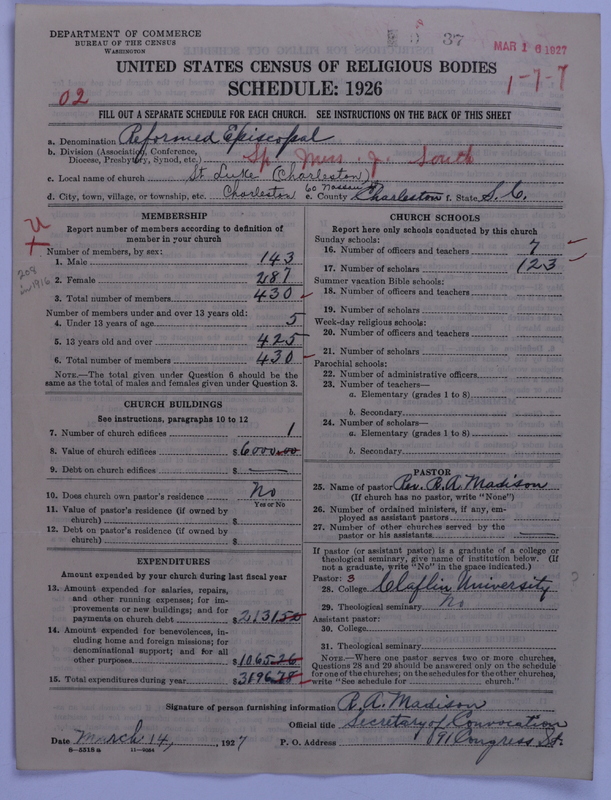 DEPARTMENT OF COMMERCE
BUREAU OF THE CENSUS
WASHINGTON
37
MAR 16 1927
UNITED STATES CENSUS OF RELIGIOUS BODIES
SCHEDULE: 1926
1-7-7
02
FILL OUT A SEPARATE SCHEDULE FOR EACH CHURCH. SEE INSTRUCTIONS ON THE BACK OF THIS SHEET
a. Denomination Reformed Episcopal
b. Division (Association, Conference,
Diocese, Presbytery, Synod, etc.) Sp Miss. J. South
c. Local name of church St Luke (Charleston)
60 Nassau St
d. City, town, village, or township, etc. Charleston e. County Charleston f. State S.C.
MEMBERSHIP
Report number of members according to definition of
member in your church
Number of members, by sex:
1. Male 143
2. Female 287
208
in 1916
3. Total number of members 430
Number of members under and over 13 years old:
4. Under 13 years of age 5
5. 13 years old and over 425
6. Total number of members 430
NOTE.—The total given under Question 6 should be the
same as the total of males and females given under Question 3.
CHURCH BUILDINGS
See instructions, paragraphs 10 to 12
7. Number of church edifices 1
8. Value of church edifices $6000.00
9. Debt on church edifices $ —
10. Does church own pastor's residence No
Yes or No
11. Value of pastor's residence (if owned by
church) $
12. Debt on pastor's residence (if owned by
church) $
EXPENDITURES
Amount expended by your church during last fiscal year
13. Amount expended for salaries, repairs,
and other running expenses; for im-
provements or new buildings; and for
payments on church debt $2131.50
14. Amount expended for benevolences, in-
cluding home and foreign missions; for
denominational support; and for all
other purposes $1065.26
15. Total expenditures during year $3196.78
CHURCH SCHOOLS
Report here only schools conducted by this church
Sunday schools:
16. Number of officers and teachers 7
17. Number of scholars 123
Summer vacation Bible schools:
18. Number of officers and teachers
19. Number of scholars
Week-day religious schools:
20. Number of officers and teachers
21. Number of scholars
Parochial schools:
22. Number of administrative officers
23. Number of teachers—
a. Elementary (grades 1 to 8)
b. Secondary
24. Number of scholars—
a. Elementary (grades 1 to 8)
b. Secondary
PASTOR
25. Name of pastor Rev. B.A. Madison
(If church has no pastor, write "None")
26. Number of ordained ministers, if any, em-
ployed as assistant pastors
27. Number of other churches served by the
pastor or his assistants
If pastor (or assistant pastor) is a graduate of a college or
theological seminary, give name of institution below. (If
not a graduate, write "No" in the space indicated.)
Pastor: 3
28. College Claflin University
29. Theological seminary No
Assistant pastor:
30. College
31. Theological seminary
NOTE.—Where one pastor serves two or more churches,
Questions 28 and 29 should be answered only on the schedule
for one of the churches; on the schedules for the other churches,
write "See schedule for church."
Signature of person furnishing information B. A. Madison
Official title Secretary of Convocation
Date March 14, 1927 P. O. Address 191 Congress St.
8—5318a 11—9284